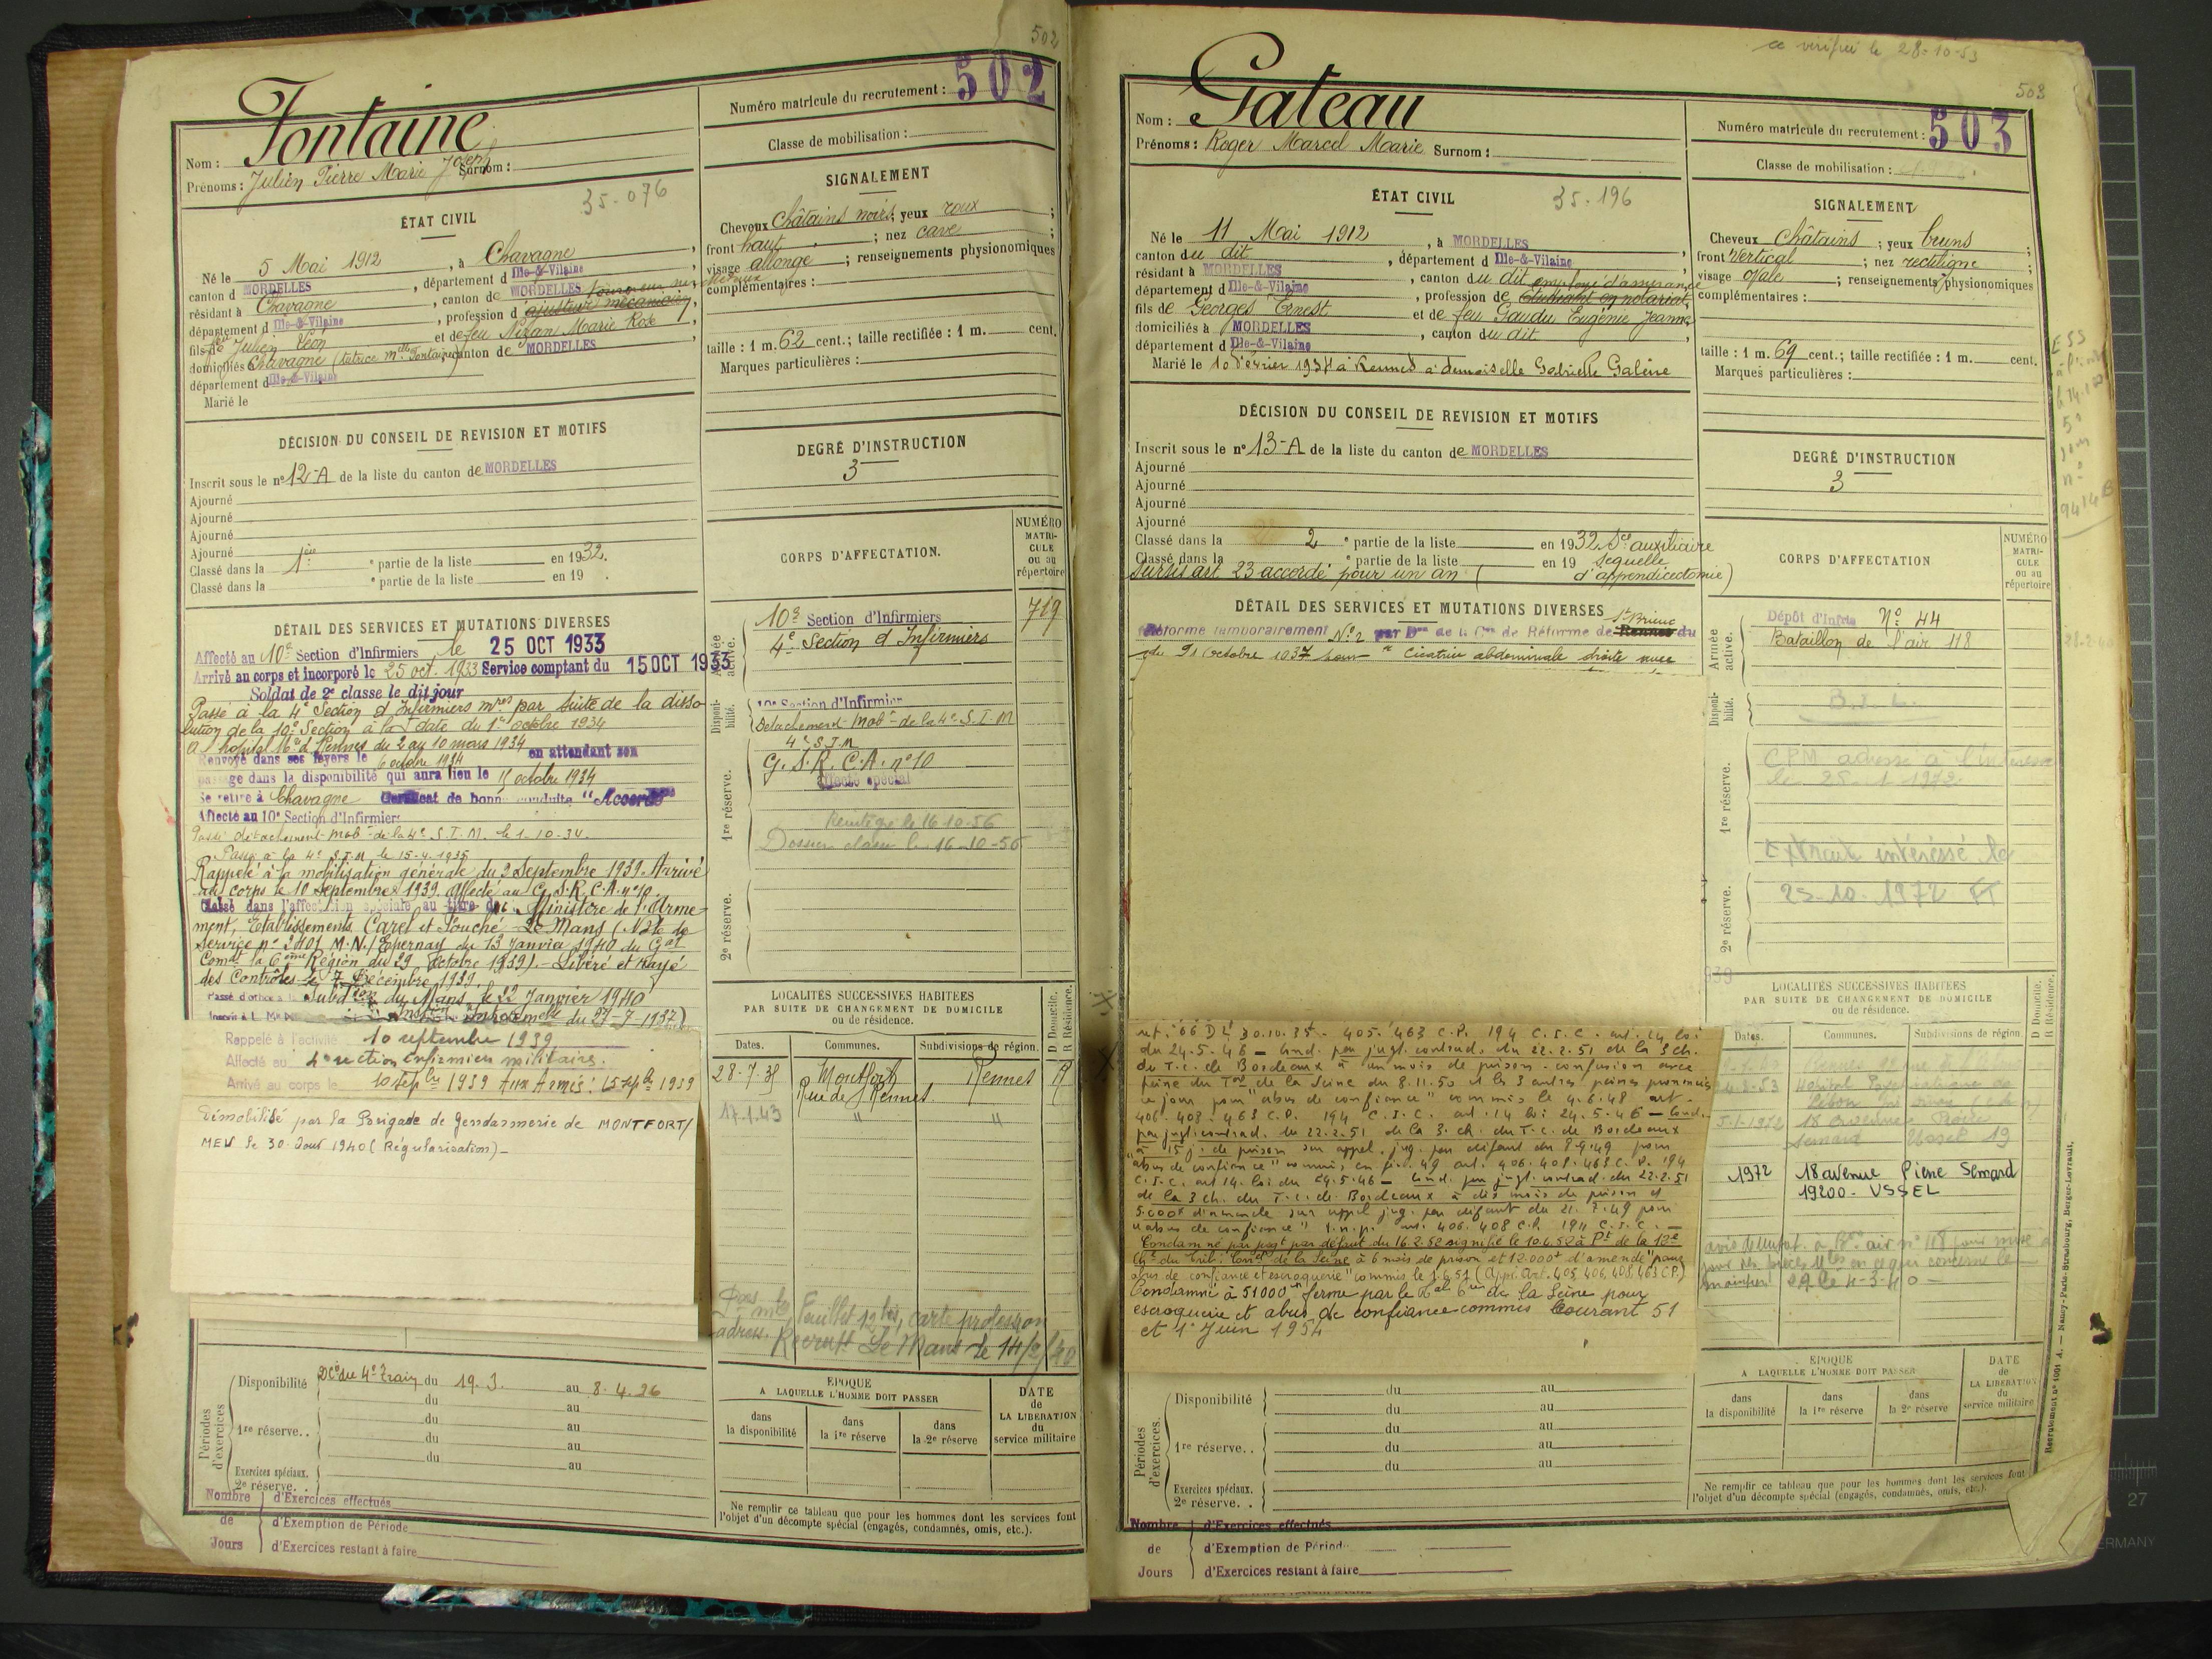 502
Numéro matricule du recrutement : 502
Classe de mobilisation :
Nom : Fontaine
Prénoms : Julien Pierre Marie Joseph Surnom :
35-076
ÉTAT CIVIL
Né le 5 Mai 1912, à Chavagne,
canton d MORDELLES, département d Ille-&-Vilaine,
résidant à Chavagne, canton de MORDELLES
département d Ille-&-Vilaine, profession d ajusteur mécanicien,
fils de feu Julien Léon et de feu Nizan Marie Rose,
domiciliés Chavagne (tutrice Mlle Fontaine) canton de MORDELLES
département d Ille-&-Vilaine
Marié le
SIGNALEMENT
Cheveux Châtains noirs; yeux roux;
front haut; nez cave;
visage allongé; renseignements physionomiques
complémentaires :
taille : 1 m. 62 cent.; taille rectifiée : 1 m. cent.
Marques particulières :
DÉCISION DU CONSEIL DE REVISION ET MOTIFS
Inscrit sous le n° 12-A de la liste du canton de MORDELLES
Ajourné
Ajourné
Ajourné
Ajourné
Classé dans la 1ère e partie de la liste en 1932.
Classé dans la e partie de la liste en 19 .
DEGRÉ D'INSTRUCTION
3
DÉTAIL DES SERVICES ET MUTATIONS DIVERSES
Affecté au 10e Section d'Infirmiers le 25 OCT 1933
Arrivé au corps et incorporé le 25 oct. 1933 Service comptant du 15 OCT 1933
Soldat de 2e classe le dit jour
Passé à la 4e Section d'Infirmiers mres par suite de la disso-
lution de la 10e Section à la date du 1er octobre 1934
à l'hôpital Mre d Rennes du 2 au 10 mars 1934
Renvoyé dans ses foyers le 6 octobre 1934 en attendant son
passage dans la disponibilité qui aura lieu le 15 octobre 1934
Se retire à Chavagne Certificat de bonne conduite "Accordé"
Affecté au 10e Section d'Infirmiers
Passé détachement mobre de la 4e S.I.M. le 1.10.34.
Passé à la 4e S.I.M le 15-4-1935
Rappelé à la mobilisation générale du 2 Septembre 1939. Arrivé
au corps le 10 Septembre 1939. Affecté au G.S.R.C.A. n°10
Classé dans l'affectation spéciale au titre du Ministère de l'Arme-
ment, Etablissements Carel et Fouché Le Mans (Note de
Service n° 3401 M.N./Epernay du 13 Janvier 1940 du Gal
Comdt la 6ème Région du 29 Octobre 1939). - Libéré et rayé
des Contrôles le 7 Décembre 1939.
Passé d'office à la Subdion du Mans le 22 Janvier 1940
du 27-7-1937)
Rappelé à l'activité 10 septembre 1939
Affecté au 4e section infirmiers militaires.
Arrivé au corps le 10 sepbre 1939 Aux Armées : 15 sepbre 1939
Démobilisé par la Brigade de Gendarmerie de MONTFORT/
MEU le 30 Aout 1940 (Régularisation)-
CORPS D'AFFECTATION.
NUMÉRO MATRI-CULE ou au répertoire
Armée active.
10e Section d'Infirmiers 719
4e Section d'Infirmiers
Disponibilité.
10e Section d'Infirmiers
Détachement Mobre de la 4e S.I.M
1re réserve.
4e S.I.M
G.S.R.C.A. n°10
Affecté spécial
Réintégré le 16-10-56
Dossier classé le 16-10-56
2e réserve.
LOCALITÉS SUCCESSIVES HABITÉES
PAR SUITE DE CHANGEMENT DE DOMICILE
ou de résidence.
D Domicile.
R Résidence.
Dates. Communes. Subdivisions de région.
28-7-35 Montfort Rennes R
Rue de Rennes
17.1.43 " "
Feuillet 12 bis, carte profession
adress. Recrutt Le Mans le 14/2/40
Périodes d'exercices.
Disponibilité DCo du 4e Train du 19.3. au 8.4.36
du au
1re réserve.. du au
du au
du au
Exercices spéciaux.
2e réserve. .
Nombre de Jours
d'Exercices effectués
d'Exemption de Période
d'Exercices restant à faire
ÉPOQUE
A LAQUELLE L'HOMME DOIT PASSER
dans la disponibilité
dans la 1re réserve
dans la 2e réserve
DATE de LA LIBÉRATION du service militaire
Ne remplir ce tableau que pour les hommes dont les services font
l'objet d'un décompte spécial (engagés, condamnés, omis, etc.).
vérifié le 28-10-53
503
Numéro matricule du recrutement : 503
Classe de mobilisation :
Nom : Gateau
Prénoms : Roger Marcel Marie Surnom :
35-196
ÉTAT CIVIL
Né le 11 Mai 1912, à MORDELLES
canton du dit, département d Ille-&-Vilaine,
résidant à MORDELLES, canton du dit employé d'assurance
département d Ille-&-Vilaine, profession de étudiant en notariat
fils de Georges Ernest et de feu Gaudu Eugénie Jeanne,
domiciliés à MORDELLES, canton du dit
département d Ille-&-Vilaine
Marié le 10 Février 1934 à Rennes à demoiselle Gabrielle Galène
SIGNALEMENT
Cheveux Châtains; yeux bruns;
front Vertical; nez rectiligne;
visage Ovale; renseignements physionomiques
complémentaires :
taille : 1 m. 69 cent.; taille rectifiée : 1 m. cent.
Marques particulières :
DÉCISION DU CONSEIL DE REVISION ET MOTIFS
Inscrit sous le n° 13-A de la liste du canton de MORDELLES
Ajourné
Ajourné
Ajourné
Ajourné
Classé dans la 2 e partie de la liste en 1932 Sce auxiliaire
Classé dans la e partie de la liste en 19 Sequelle
Sursis art. 23 accordé pour un an ( d'appendicectomie)
DEGRÉ D'INSTRUCTION
3
DÉTAIL DES SERVICES ET MUTATIONS DIVERSES
St Brieuc
Réformé temporairement N°2 par Don de la Con de Réforme de Rennes du
du 21 Octobre 1937 pour "Cicatrice abdominale droite avec
art. 66 DL 30.10.35 - 405. 463 C.P. 194 C.I.C. art. 14 loi
du 24-5-46 - Cond. par jugt. contrad. du 22.2.51 de la 3 ch.
du T.C. de Bordeaux à un mois de prison - confusion avec
peine du Tal de la Seine du 8.11.50 et les 3 autres peines prononcés
ce jour pour "abus de confiance" commis le 4.6.48 art.
406. 408. 463 C.P. 194 C.I.C. art. 14 loi 24.5.46 - Cond.
par jugt. contrad. du 22.2.51 de la 3. ch. du T.C. de Bordeaux
à 15 j. de prison sur appel. jug. par défaut du 8.9.49 pour
"abus de confiance" commis en 49 art. 406. 408. 463 C.P. 194
C.I.C. art 14. loi du 24.5.46 - Cond. par jugt. contrad. du 22.2.51
de la 3 ch. du T.C. de Bordeaux à dix mois de prison et
5.000f d'amende sur appel jug. par défaut du 21.7.49 pour
"abus de confiance" art. 406. 408 C.P. 194 C.I.C. -
Condamné par jugt par défaut du 16.2.52 signifié le 10.6.52 à Pt de la 12e
Che du Trib. Corel de la Seine à 6 mois de prison et 12.000f d'amende "pour
abus de confiance et escroquerie" commis le 1.6.51 (Appl. Art. 405, 406, 408, 463 C.P.)
Condamné à 51000 ferme par le Tal de la Seine pour
escroquerie et abus de confiance commis Courant 51
et 1er Juin 1954
CORPS D'AFFECTATION
NUMÉRO MATRI-CULE ou au répertoire
Armée active.
Dépôt d'Infrie N° 44
Bataillon de l'air 118
Disponibilité.
1re réserve.
C.P.M. adressé à l'intéressé
Extrait intéressé le
2e réserve.
25.10.1972 FT
LOCALITÉS SUCCESSIVES HABITÉES
PAR SUITE DE CHANGEMENT DE DOMICILE
ou de résidence.
D Domicile.
R Résidence.
Dates. Communes. Subdivisions de région.
Hôpital Psychiatrique de
1972 18 avenue Pierre Sémard
19200 - USSEL
Périodes d'exercices.
Disponibilité du au
du au
1re réserve. . du au
du au
du au
Exercices spéciaux.
2e réserve. .
Nombre de Jours
d'Exercices effectués
d'Exemption de Période
d'Exercices restant à faire
ÉPOQUE
A LAQUELLE L'HOMME DOIT PASSER
dans la disponibilité
dans la 1re réserve
dans la 2e réserve
DATE de LA LIBÉRATION du service militaire
Ne remplir ce tableau que pour les hommes dont les services font
l'objet d'un décompte spécial (engagés, condamnés, omis, etc.).
Recrutement n° 1001 A. — Nancy-Paris-Strasbourg, Berger-Levrault.
27
GERMANY